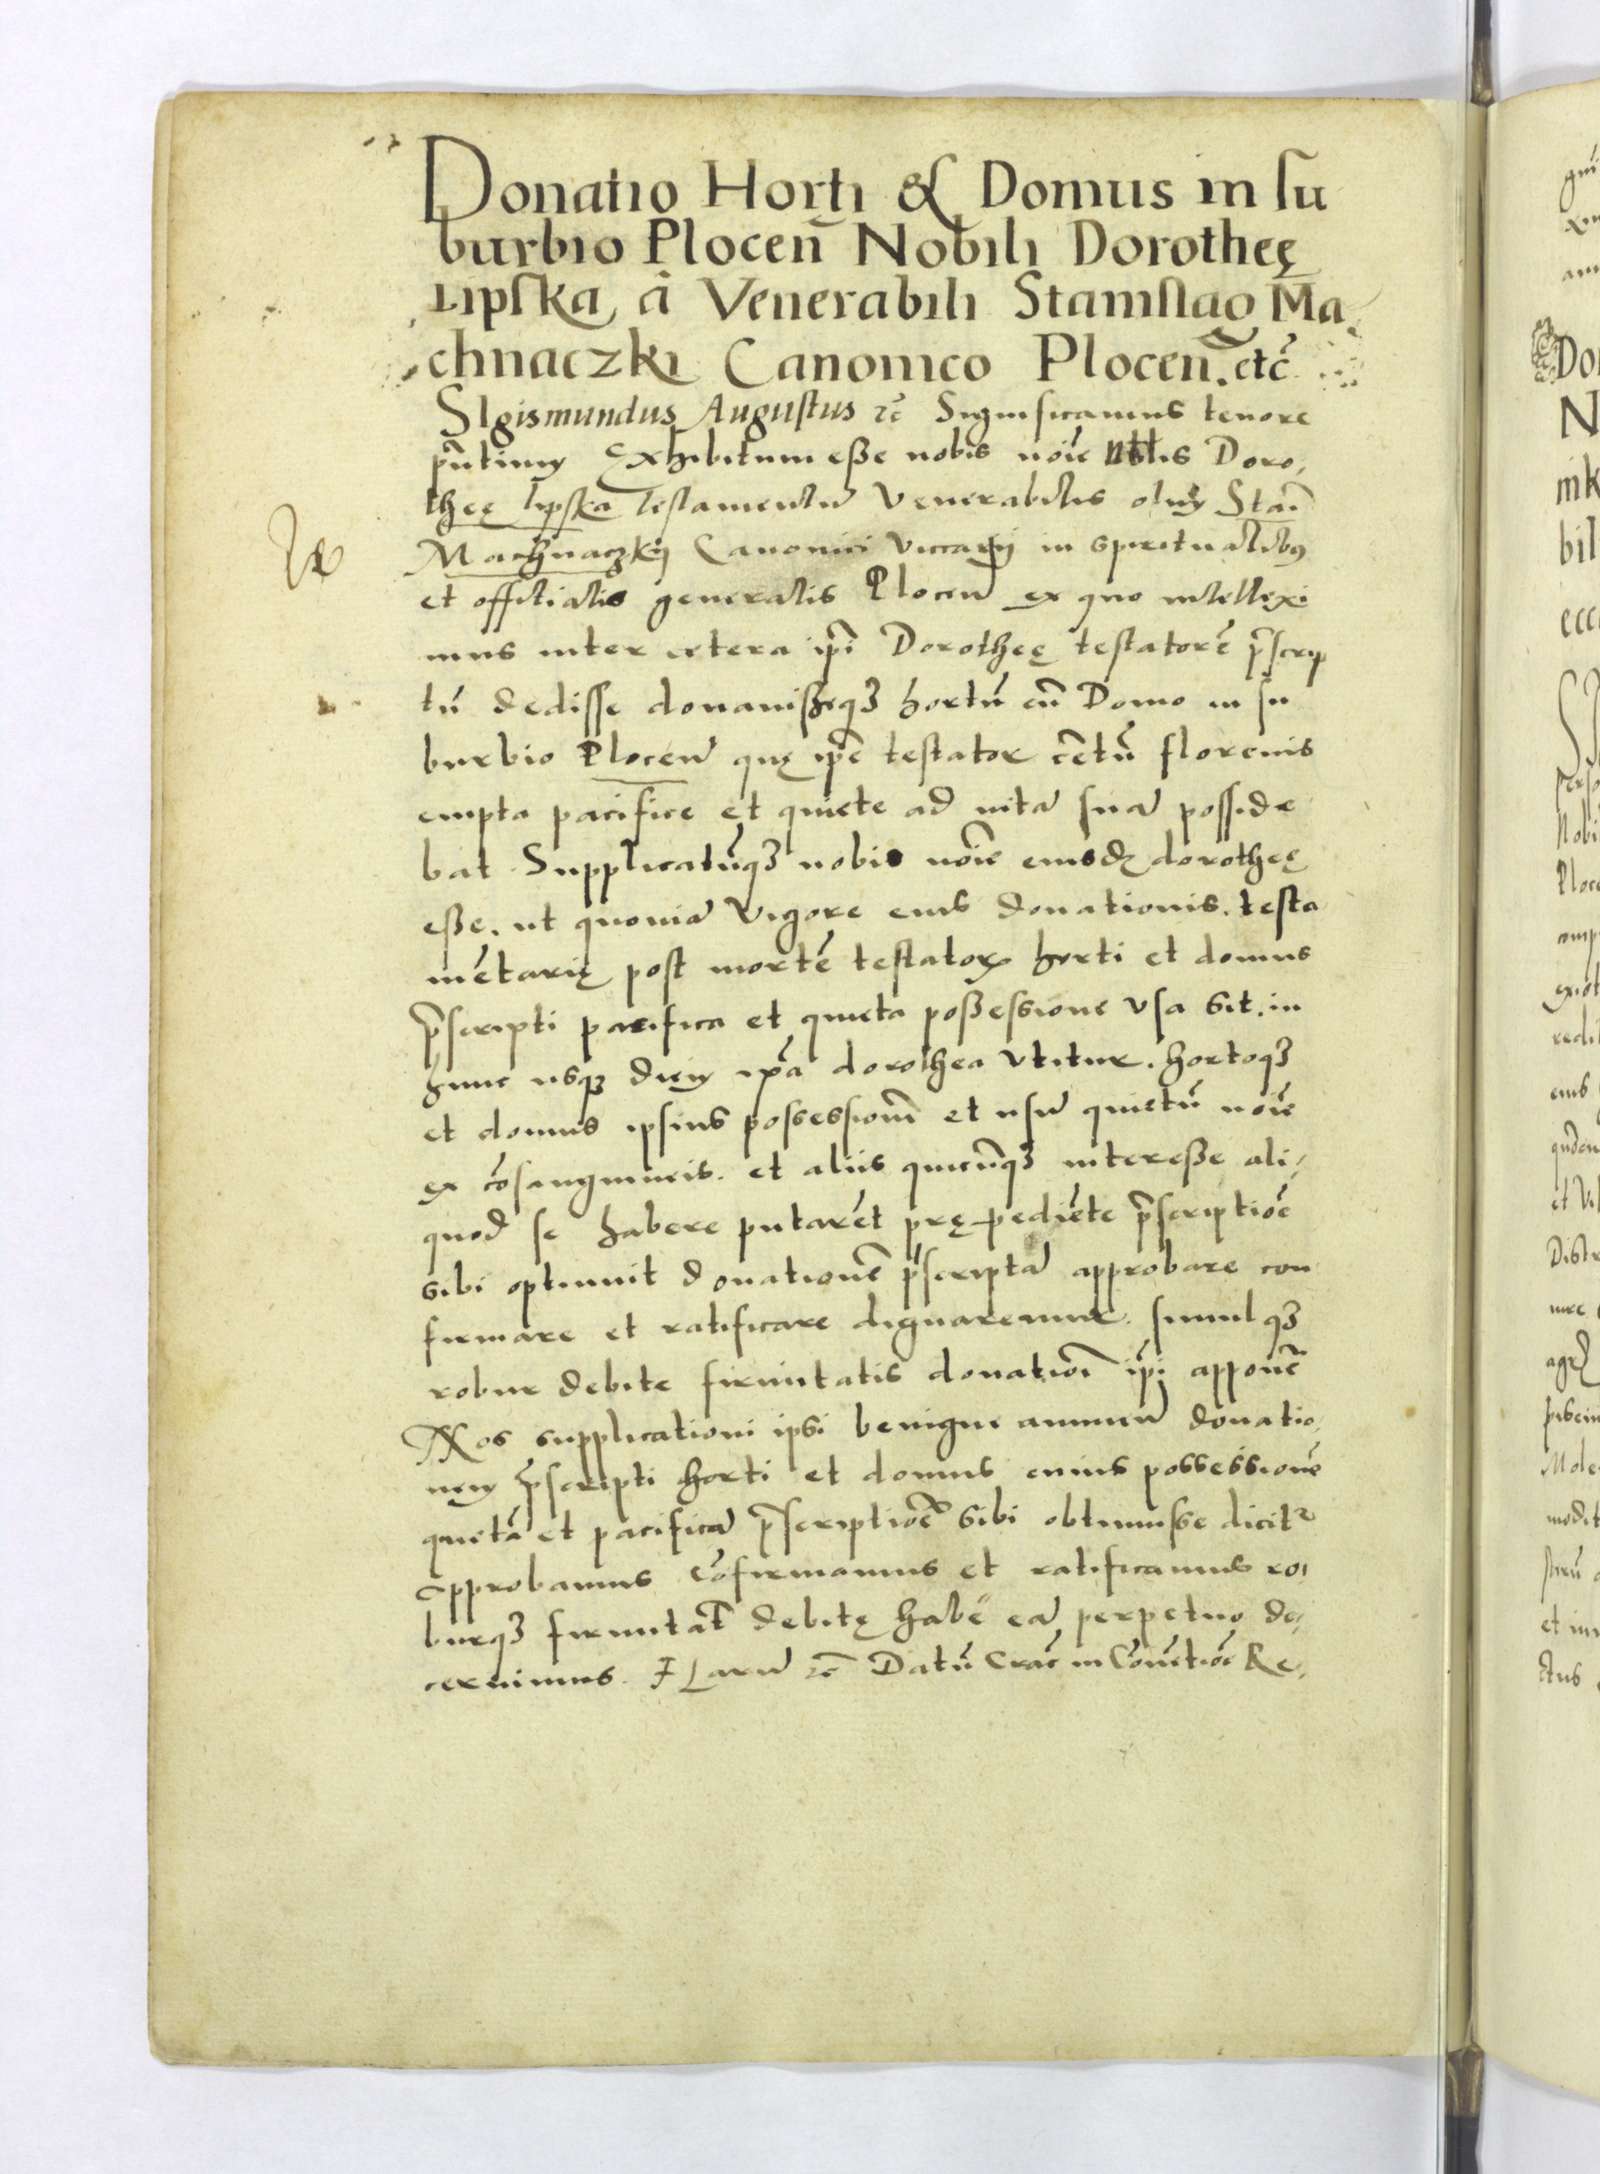 Donatio Horti & Domus in su
burbio Plocen̄ Nobili Dorotheę
Lipska â Venerabili Stanislao Ma
chnaczki Canonico Plocen̄. etc̄
SIgismundus Augustus ꝛc̄ Significamus tenore
p̄ntium Exhibitum eſſe nobis noīe Nblis Doro,
theę lipska testamentū Venerabilis olim Stanī
Machnaczkij Canonici Viccarij in spiritualibꝰ
et offitialis generalis Plocen̄ ex quo intellexi
mus inter cetera ip̄i Dorotheę testatorē p̄scrip
tū dedisse donauiſſeqꝫ hortū cū Domo in su
burbio Plocen̄ quę ip̄e testator centū florenis
empta pacifice et quiete ad vitā suā posside
bat Supplicatūqꝫ nobis noīe eiusdē dorotheę
eſſe. ut quoniā vigore eius donationis testa
mētarię post mortē testatoris horti et domus
p̄scripti pacifica et quieta poſſessione vsa sit. in
hunc usqꝫ diem ip̄a dorothea vtitur. hortoqꝫ
et domus ipsius possessionī et usū quietū noīe
ex cōsanguineis. et aliis quicūqꝫ intereſſe ali,
quod se habere putarēt prępediēte p̄scriptiōe
sibi optinuit donationē p̄scriptā approbare con
firmare et ratificare dignaremur. simulqꝫ
robur debite firmitatis donationī ip̄i apponē
Nos supplicationi ipsi benigne annuen̄ donatio,
nem p̄scripti horti et domus cuius possessionē
quietā et pacificā p̄scriptiōe sibi obtinuisse dicitꝛ
approbamus cōfirmamus et ratificamus ro,
burqꝫ firmitatī debitę habē eā perpetuo de,
cernimus. Harū ꝛc̄ Datū Crac̄ in Cōuētiōe Re,